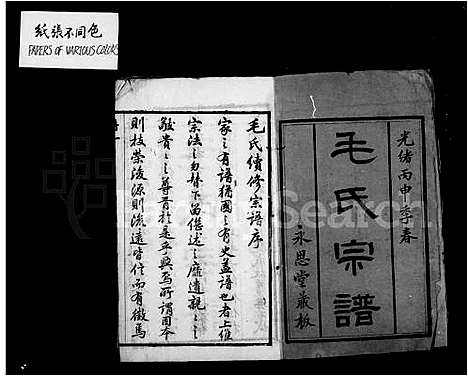 紙張不同色
PAPERS OF VARIOUS COLORS
光緒丙申季春
毛氏宗譜
永思堂藏板
毛氏續修宗譜序
家之有譜猶國之有史蓋譜也者上維
宗法之勿替下留
述之靡遺親之
敬貴之尊首於是乎與焉所謂固本
則枝榮浚源則流遠皆信而有徵焉
FamilySearch